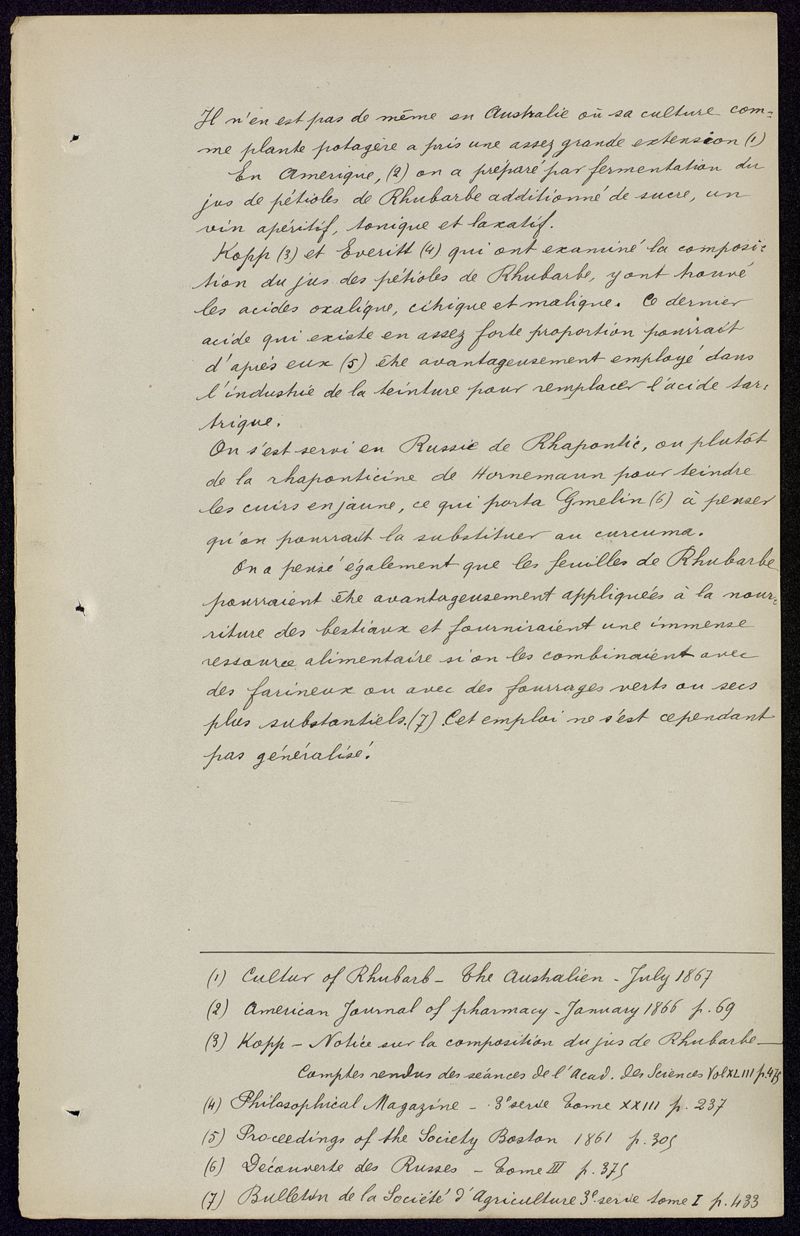 Il n'en est pas de même en Australie où sa culture com=
me plante potagère a pris une assez grande extension (1)
En Amerique, (2) on a préparé par fermentation du
jus de pétioles de Rhubarbe additionné de sucre, un
vin apéritif, tonique et laxatif.
Kopp (3) et Everitt (4) qui ont examiné la composi=
tion du jus des pétioles de Rhubarbe, y ont trouvé
les acides oxalique, citrique et malique. Ce dernier
acide qui existe en assez forte proportion pourrait
d'après eux (5) être avantageusement employé dans
l'industrie de la teinture pour remplacer l'acide tar=
trique.
On s'est servi en Russie de Rhapontic, ou plutôt
de la rhaponticine de Hornemann pour teindre
les cuirs en jaune, ce qui porta Gmelin (6) à penser
qu'on pourrait la substituer au curcuma.
On a pensé également que les feuilles de Rhubarbe
pourraient être avantageusement appliquées à la nour=
riture des bestiaux et fourniraient une immense
ressource alimentaire si on les combinaient avec
des farineux ou avec des fourrages verts ou secs
plus substantiels. (7) Cet emploi ne s'est cependant
pas généralisé.
(1) Cultur of Rhubarb - The Australien - July 1867
(2) American Journal of pharmacy - January 1866 p. 69
(3) Kopp - Notice sur la composition du jus de Rhubarbe -
Comptes rendus des séances de l'Acad. des Sciences Vol XLIII p. 475
(4) Philosophical Magazine - 3e serie Tome XXIII p. 237
(5) Proceedings of the Society Boston 1861 p. 305
(6) Découverte des Russes - Tome III p. 375
(7) Bulletin de la Société d'Agriculture 3e serie tome I p. 433